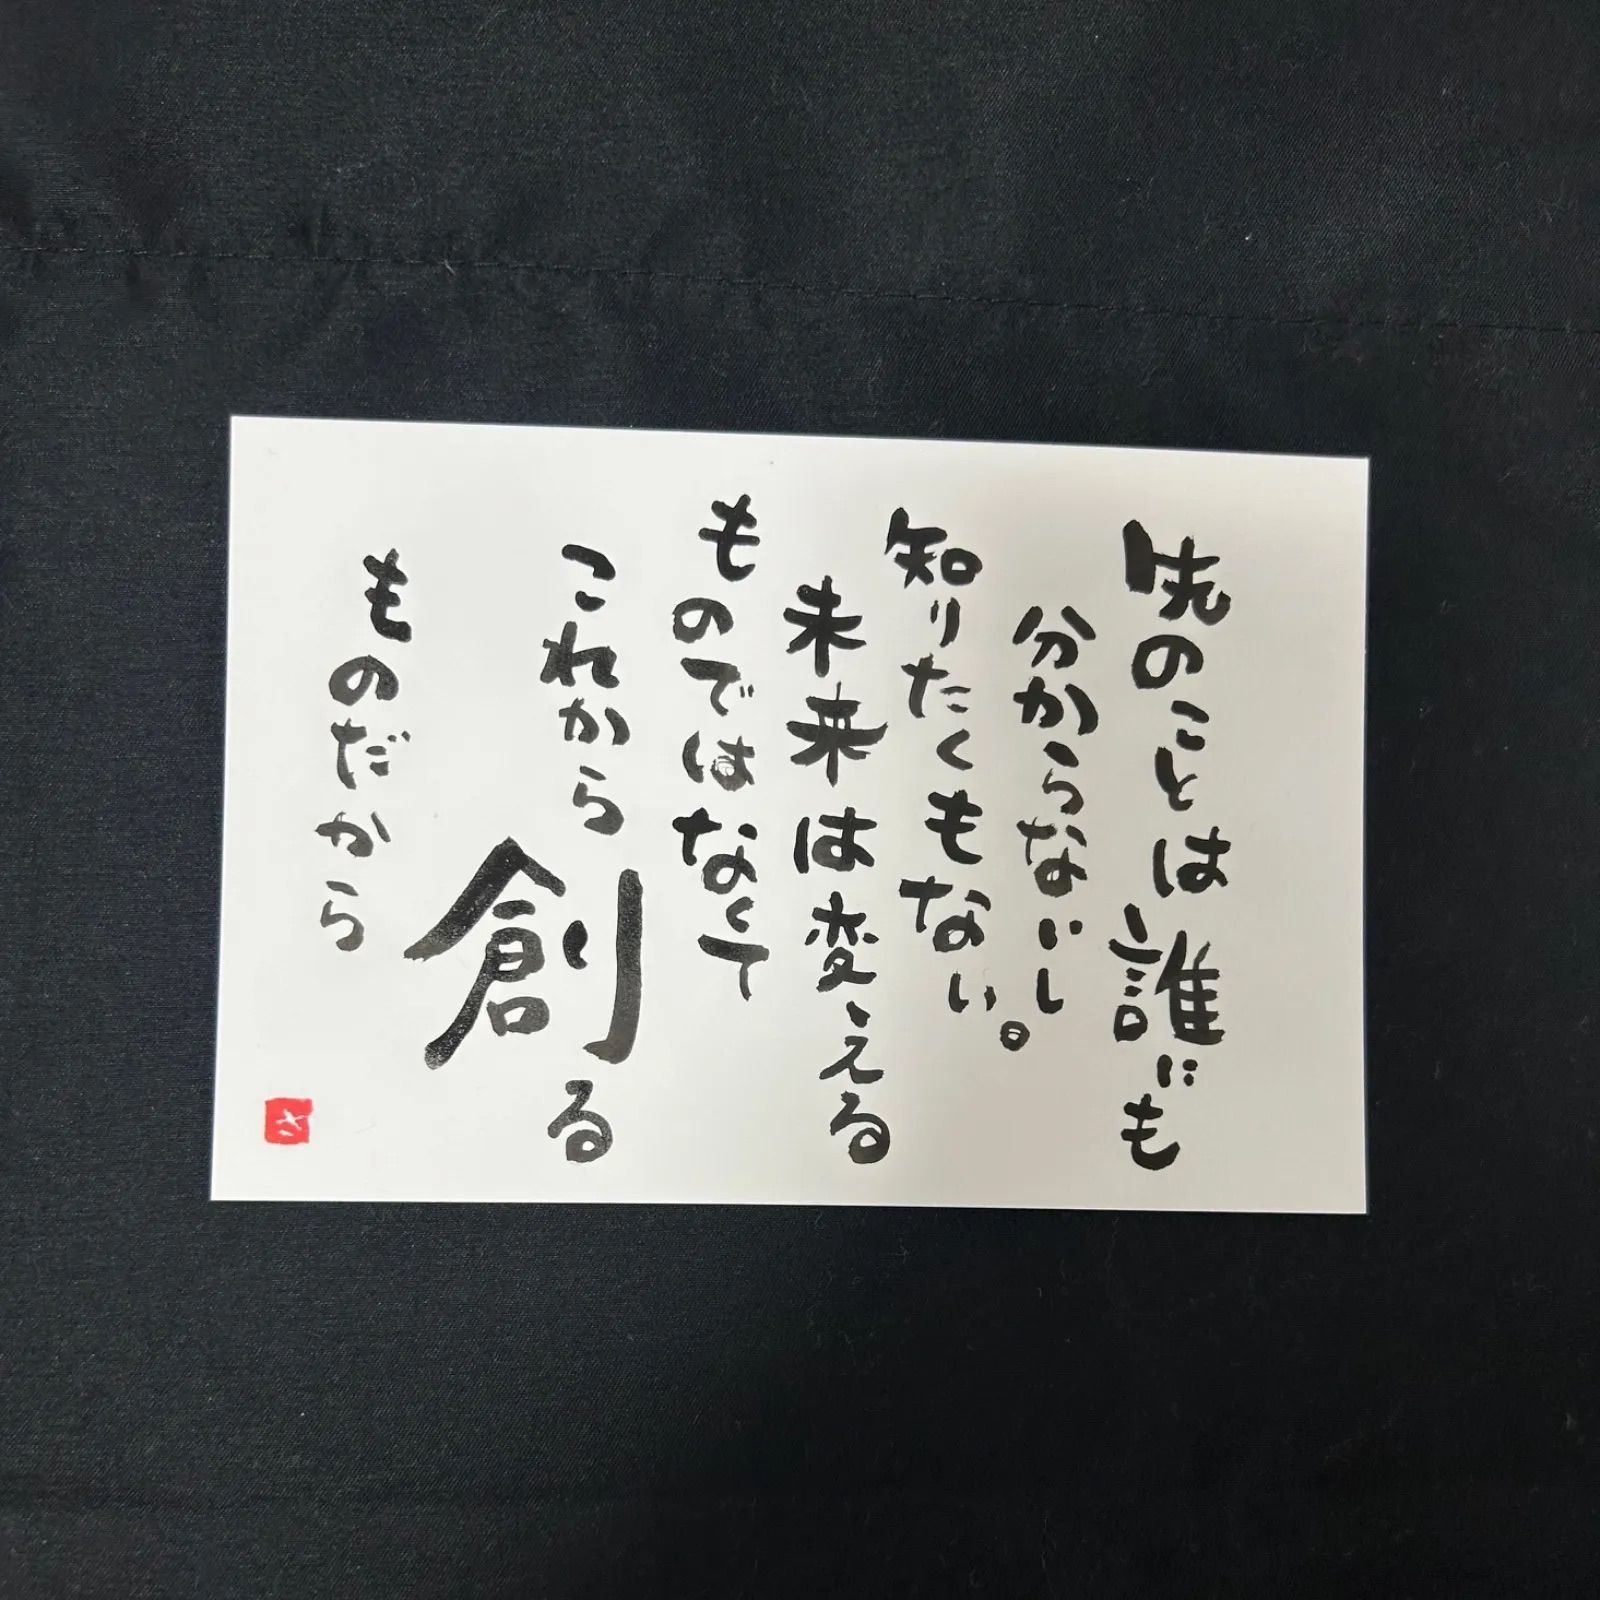 先のことは誰にも
分からないし
知りたくもない。
未来は変える
ものではなくて
これから創る
ものだから